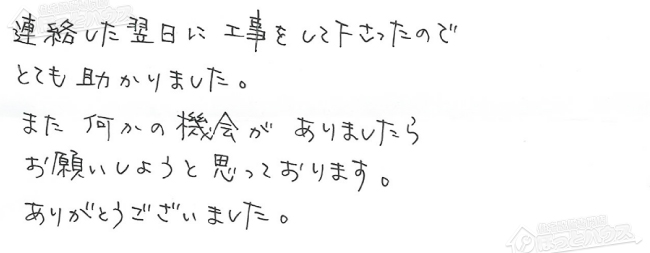 連絡した翌日に工事をして下さったので
とても助かりました。
また何かの機会がありましたら
お願いしようと思っております。
ありがとうございました。